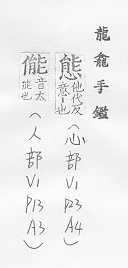 龍龕手鑑
態 他代反 意一也 (心部 V1 P23 A4)
儱 音太 能也 (人部 V1 P13 A3)